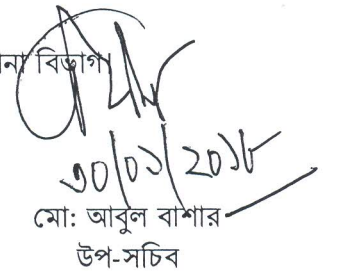 বিভাগ
৩০/০১/২০১৮
মো: আবুল বাশার
উপ-সচিব